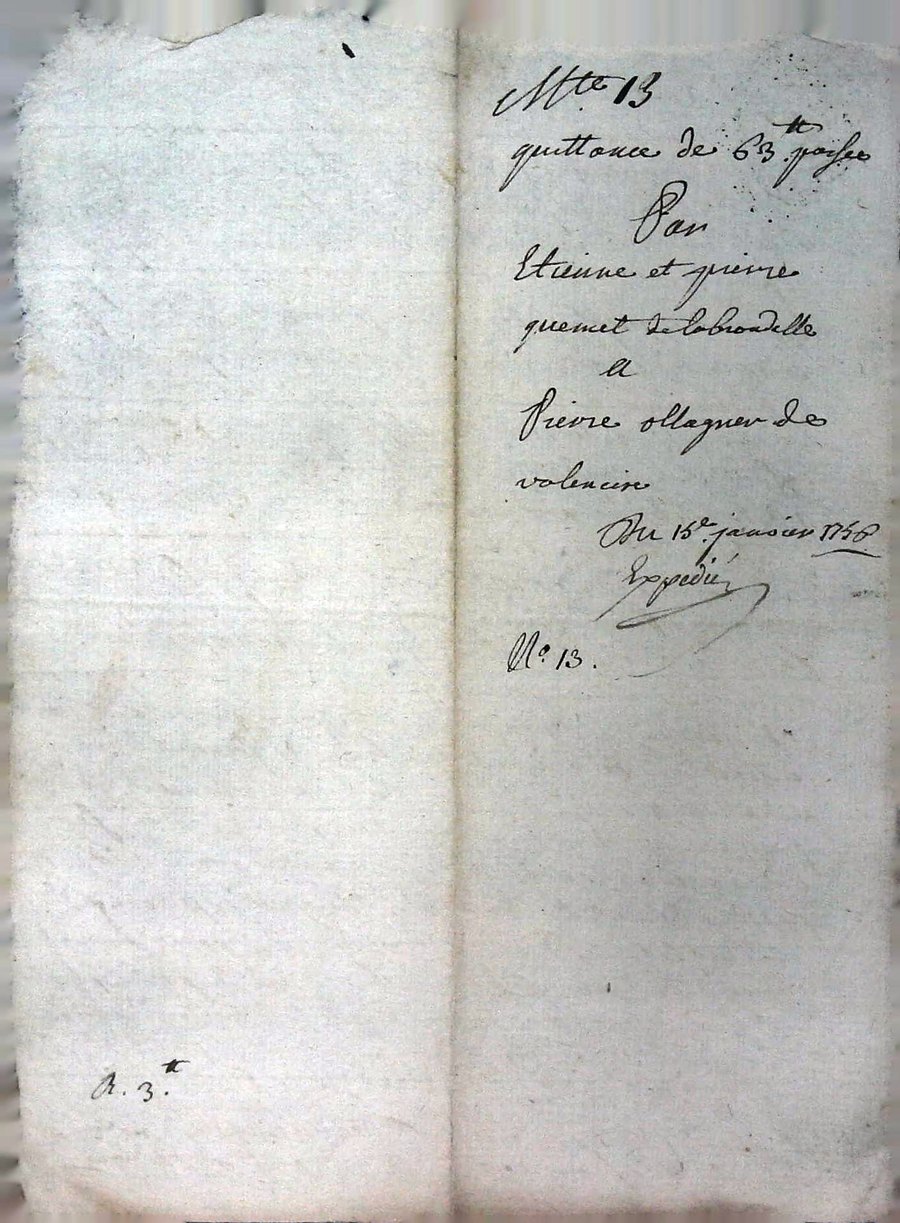 Mte 13
quittance de 63 ₶ passee
Par
Etienne et pierre
quemet de labroudelle
A
Pierre ollagner de
valencire
Du 15e janvier 1756
Expedié
No. 13.
R. 3. ₶